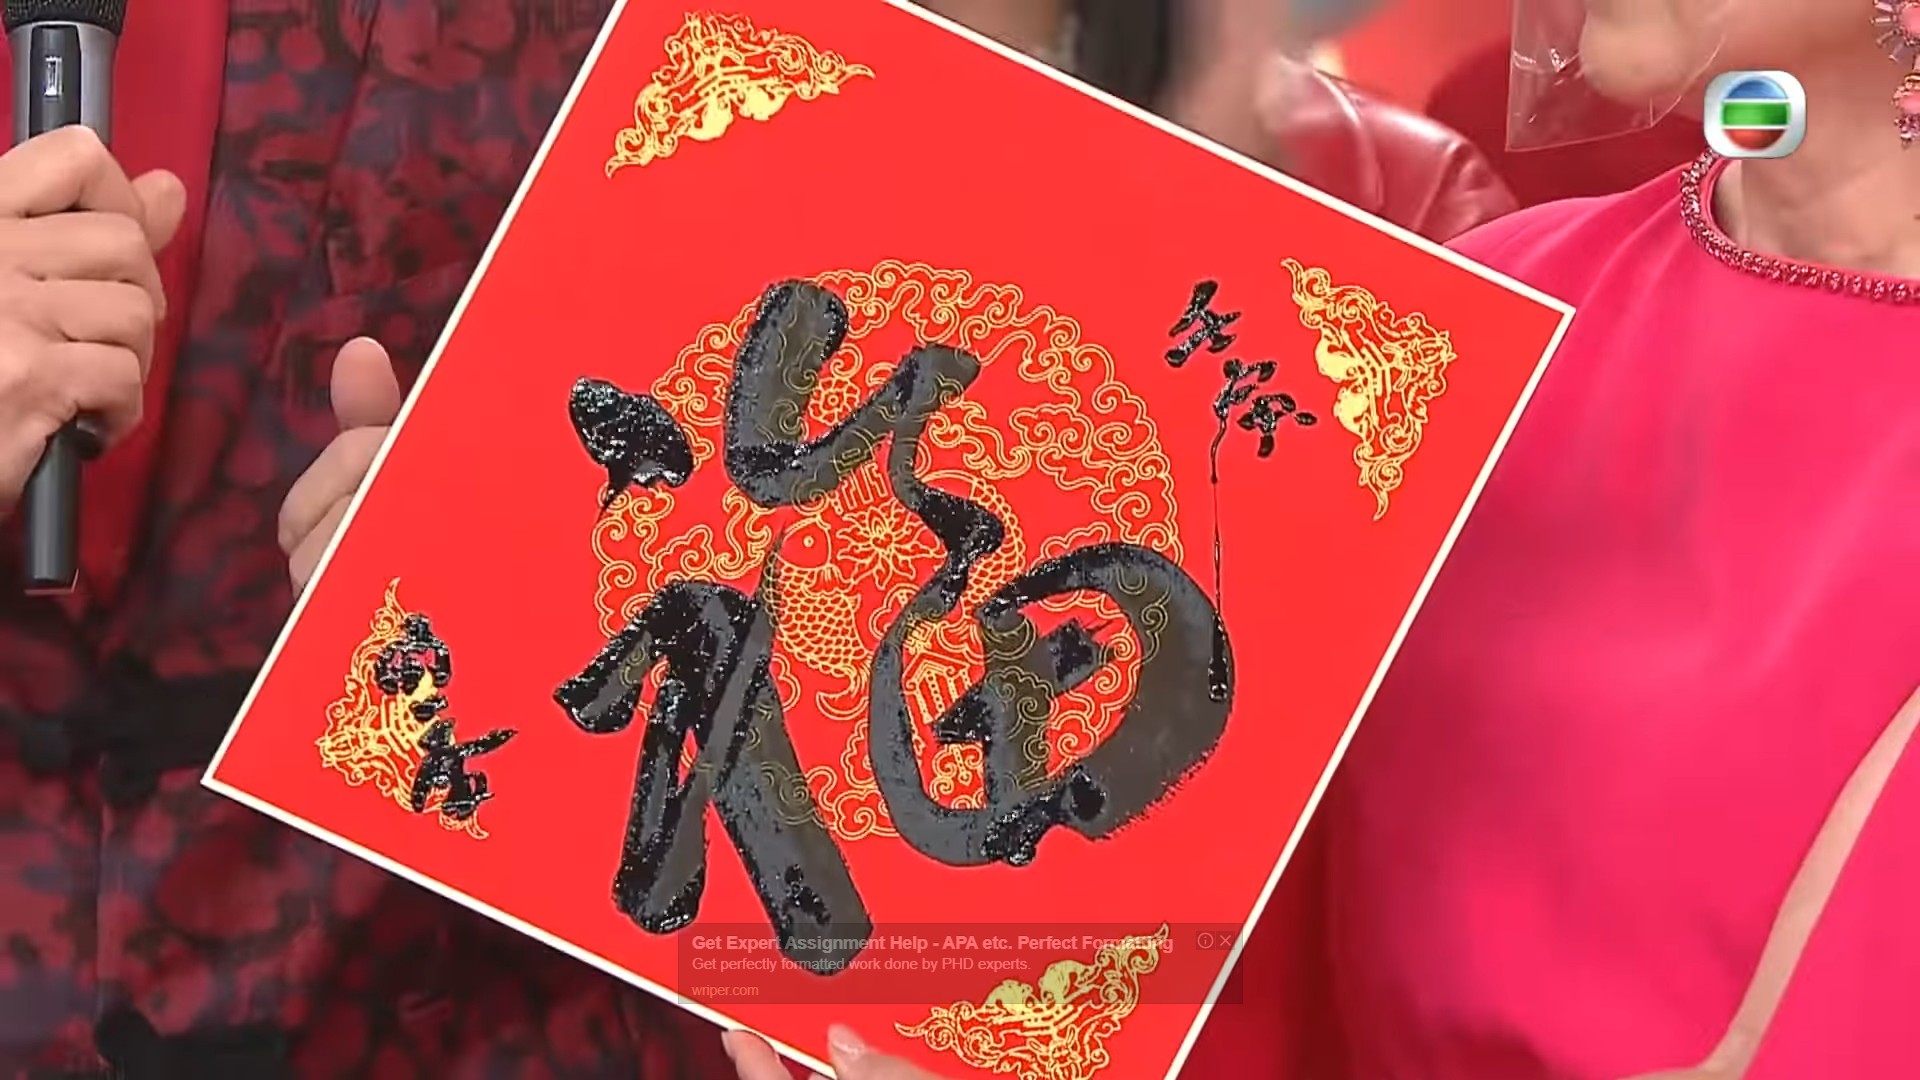 福
Get Expert Assignment Help - APA etc. Perfect Formatting
Get perfectly formatted work done by PHD experts.
wriper.com